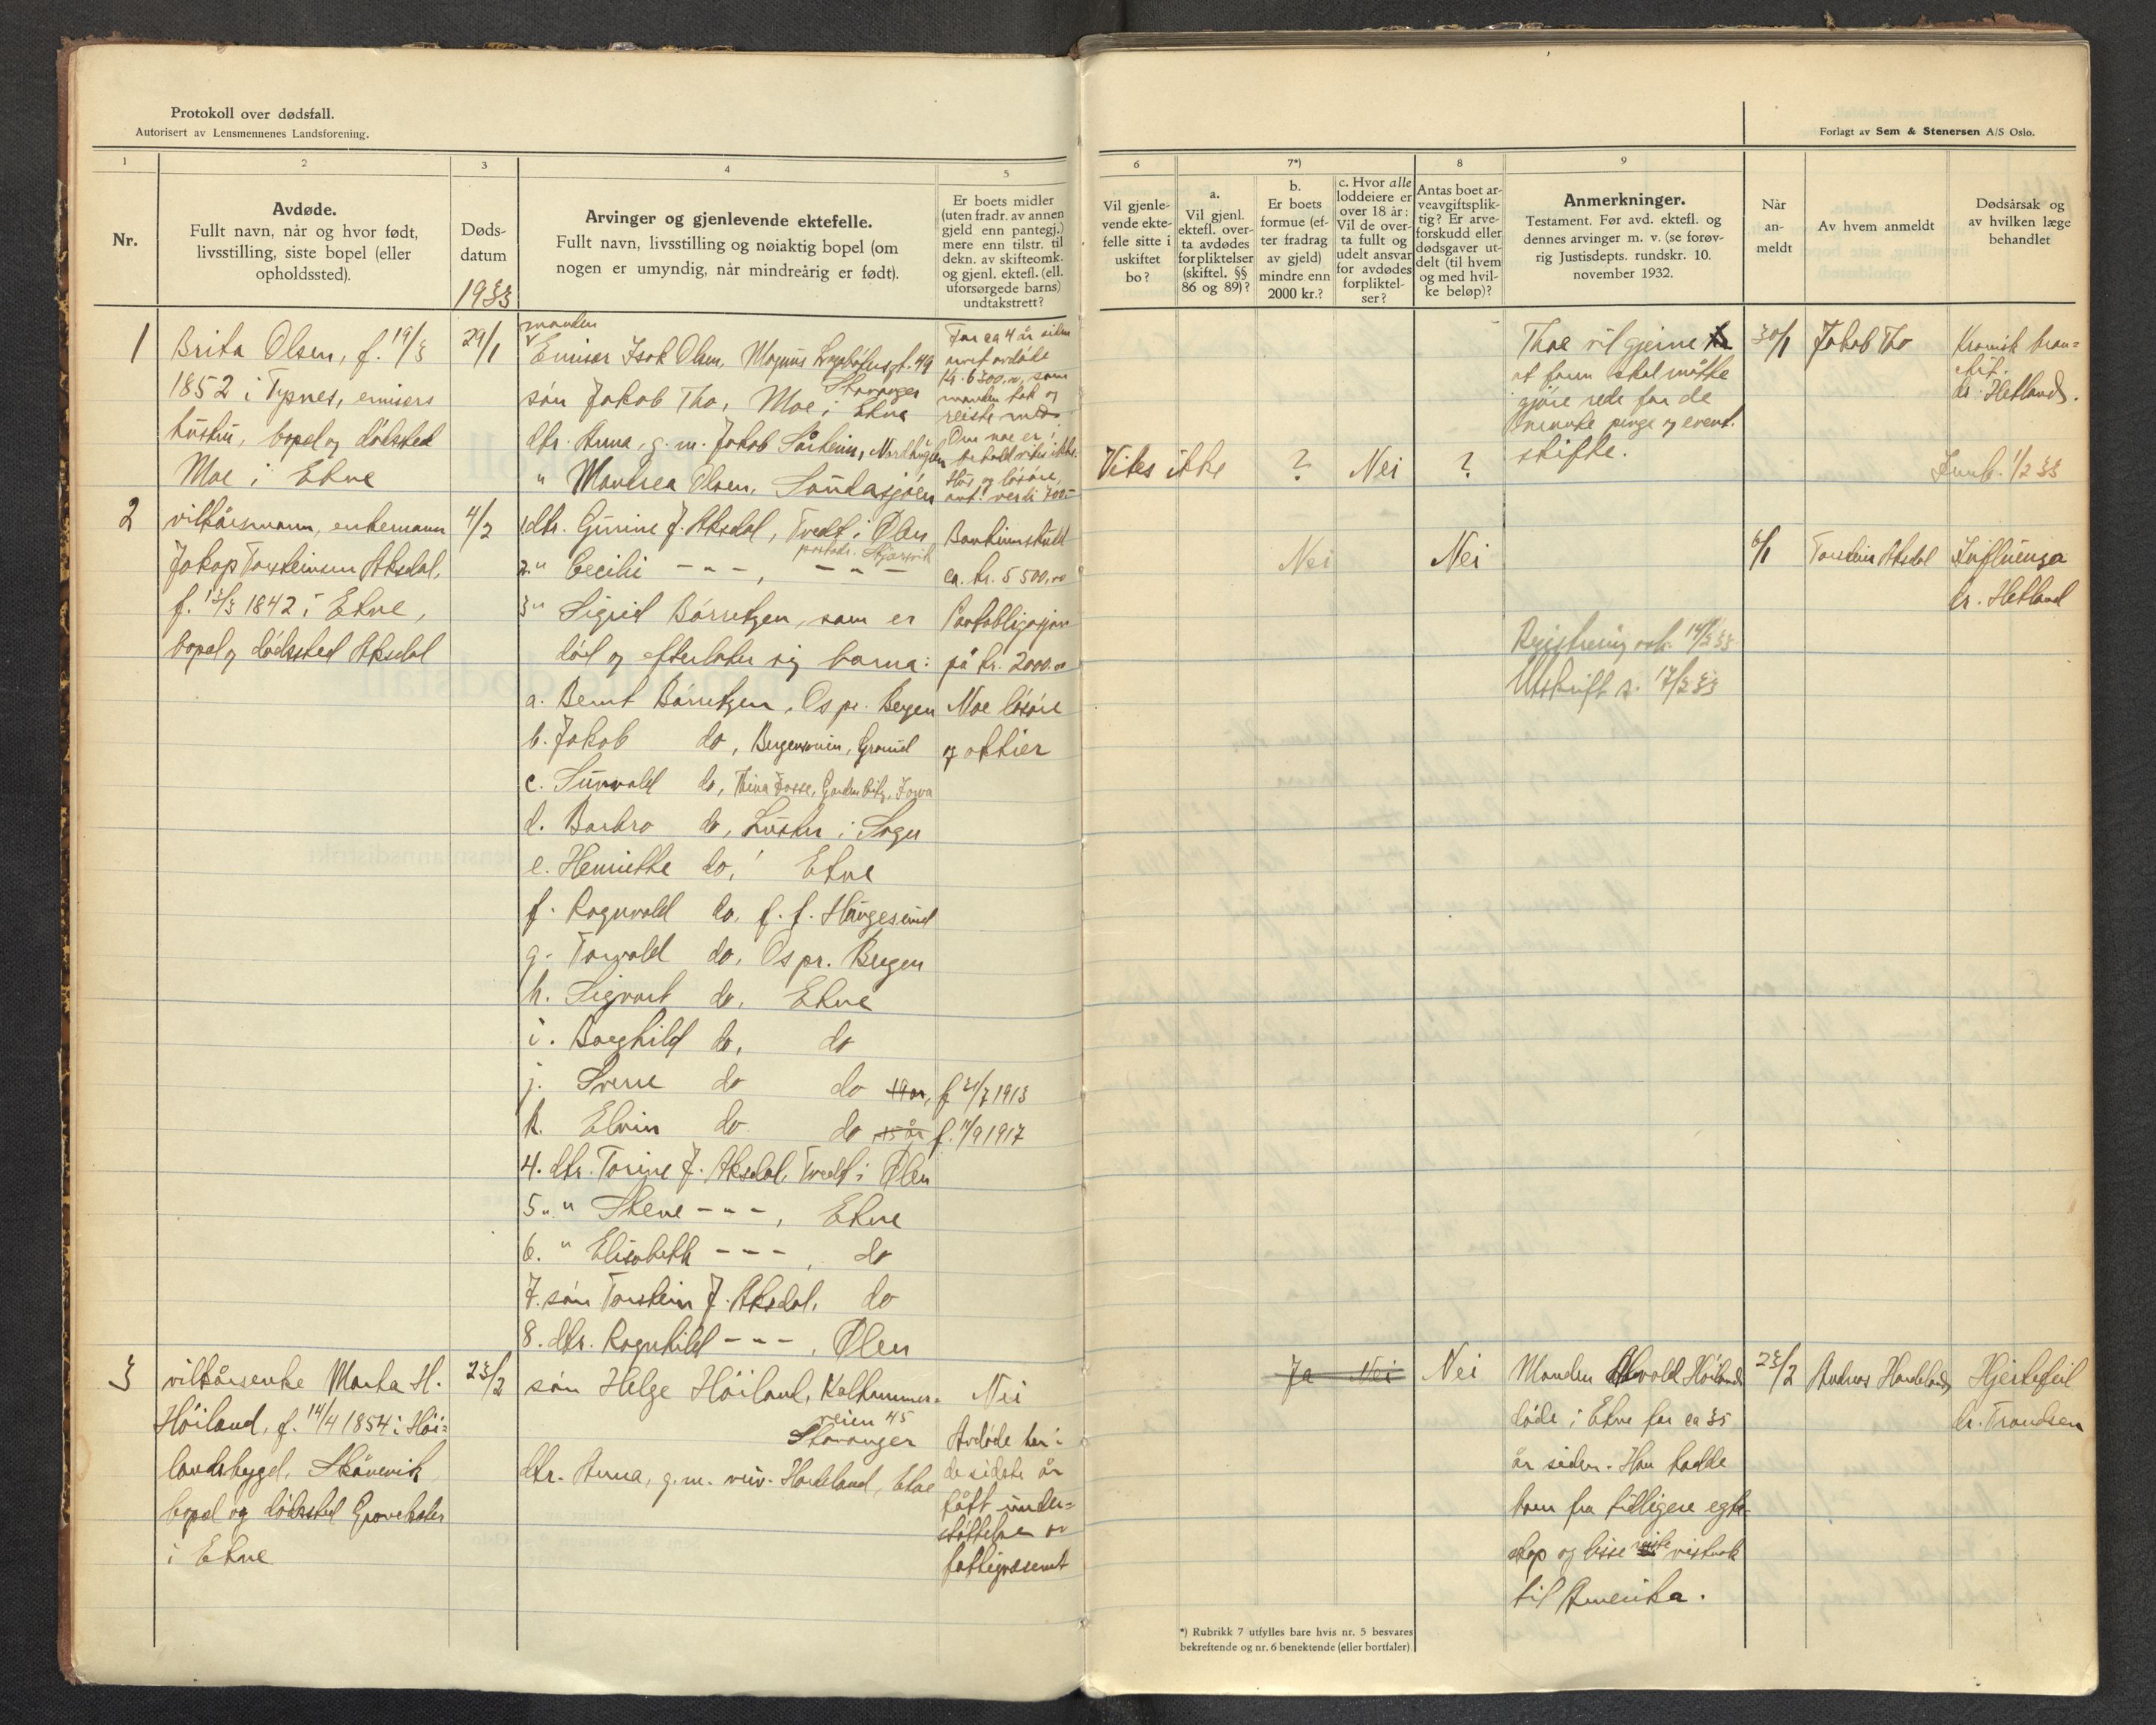 Protokoll over dødsfall.
Autorisert av Lensmennenes Landsforening.
1
2
3
4
5
Nr.
Avdøde.
Fullt navn, når og hvor født,
livsstilling, siste bopel (eller
opholdssted).
Døds-
datum
1933
Arvinger og gjenlevende ektefelle.
Fullt navn, livsstilling og nøiaktig bopel (om
nogen er umyndig, når mindreårig er født).
Er boets midler
(uten fradr. av annen
gjeld enn pantegj.)
mere enn tilstr. til
dekn. av skifteomk.
og gjenl. ektefl. (ell.
uforsørgede barns)
undtakstrett?
1
Brita Olsen, f. 19/3
1852 i Typnes, emisærs
hustru, bopel og dødssted
Moe i Etne
29/1
manden
Emisær Isak Olsen, Magnus Lagabøtersgt. 49
Stavanger
søn Jakob Tho, Moe i Etne
dtr. Anna, g. m. Jakob Såtheim,
" Mandrea Olsen, Saudasjøen
For ca 4 år siden
arvet avdøde
kr. 6300.00, som
manden tok og
reiste med.
Om noe er i
behold vites ikke.
Hus og løsøre,
ant. verdi 700.-
2
vilkårsmann, enkemann
Jakop Torsteinsen Aksdal,
f. 13/3 1842 i Etne,
bopel og dødssted Aksdal
4/2
1 dtr. Gurine J. Aksdal, Tvedt i Ølen
postadr.
2. " Cecilie - " - , - " -
3 " Sigrid Børretzen, som er
død og efterlater sig barna:
a. Bernt Børretzen, Os pr. Bergen
b. Jakob do,
c. Sunvald do,
d. Borbro do, Luster i Sogn
e. Henriette do, Etne
f. Ragnvald do, p. t. Haugesund
g. Torvald do, Os pr. Bergen
h. Sigvart do, Etne
i. Borghild do, do
j. Sverre do do 19 år, f. 21/7 1913
k. Elvin do do 15 år f. 11/9 1917
4. dtr. Torine J. Aksdal, Tvedt i Ølen
5. " Stene - " - , Etne
6. " Elisabeth - " - , do
7. søn Torstein J. Aksdal, do
8. dtr. Ragnhild - " - , Ølen
Bankinnskudd
ca. kr. 5500,00
Pantobligasjon
på kr. 2000.00
Noe løsøre
og aktier
3
vilkårsenke Marta H.
Høiland, f. 14/4 1854 i Høi-
landsbygd, Skånevik
bopel og dødssted
i Etne
23/2
søn Helge Høiland, Kalhammer-
veien 45
Stavanger
dtr. Anna, g. m. Hardeland, Etne
Nei
Avdøde har i
de sidste år
fått under-
støttelse av
fattigvesenet
Forlagt av Sem & Stenersen A/S Oslo.
6
7*)
8
9
Vil gjenle-
vende ekte-
felle sitte i
uskiftet
bo?
a.
Vil gjenl.
ektefl. over-
ta avdødes
forpliktelser
(skiftel. §§
86 og 89)?
b.
Er boets
formue (ef-
ter fradrag
av gjeld)
mindre enn
2000 kr.?
c. Hvor alle
loddeiere er
over 18 år:
Vil de over-
ta fullt og
udelt ansvar
for avdødes
forpliktel-
ser?
Antas boet ar-
veavgiftsplik-
tig? Er arve-
forskudd eller
dødsgaver ut-
delt (til hvem
og med hvil-
ke beløp)?
Anmerkninger.
Testament. Før avd. ektefl. og
dennes arvinger m. v. (se forøv-
rig Justisdepts. rundskr. 10.
november 1932.
Når
an-
meldt
Av hvem anmeldt
Dødsårsak og
av hvilken læge
behandlet
Vites ikke
?
Nei
?
Thoe vil gjerne
at faren skal måtte
gjøre rede for de
penge og event.
skifte.
30/1
Jakob Tho
Kronisk bron-
kit.
dr. Hetland.
1/2 33
Nei
Nei
Registrering 14/2 33
Utskrift s. 17/2 33
6/1
Torstein Aksdal
Influensa
dr. Hetland
Ja Nei
Nei
Manden Høiland
døde i Etne for ca 35
år siden. Han hadde
barn fra tidligere egte-
skap og disse reiste vistnok
til Amerika.
23/2
Andreas Hardeland
Hjertefeil
dr. Trondsen
*) Rubrikk 7 utfylles bare hvis nr. 5 besvares
bekreftende og nr. 6 benektende (eller bortfaler).